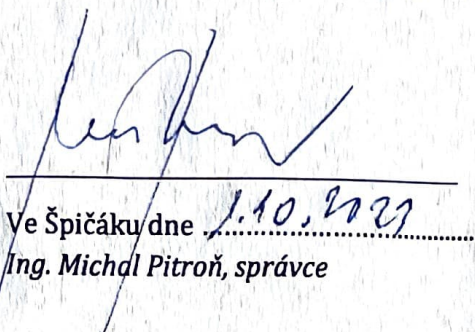 Ve Špičáku dne 1.10.2023
Ing. Michal Pitroň, správce